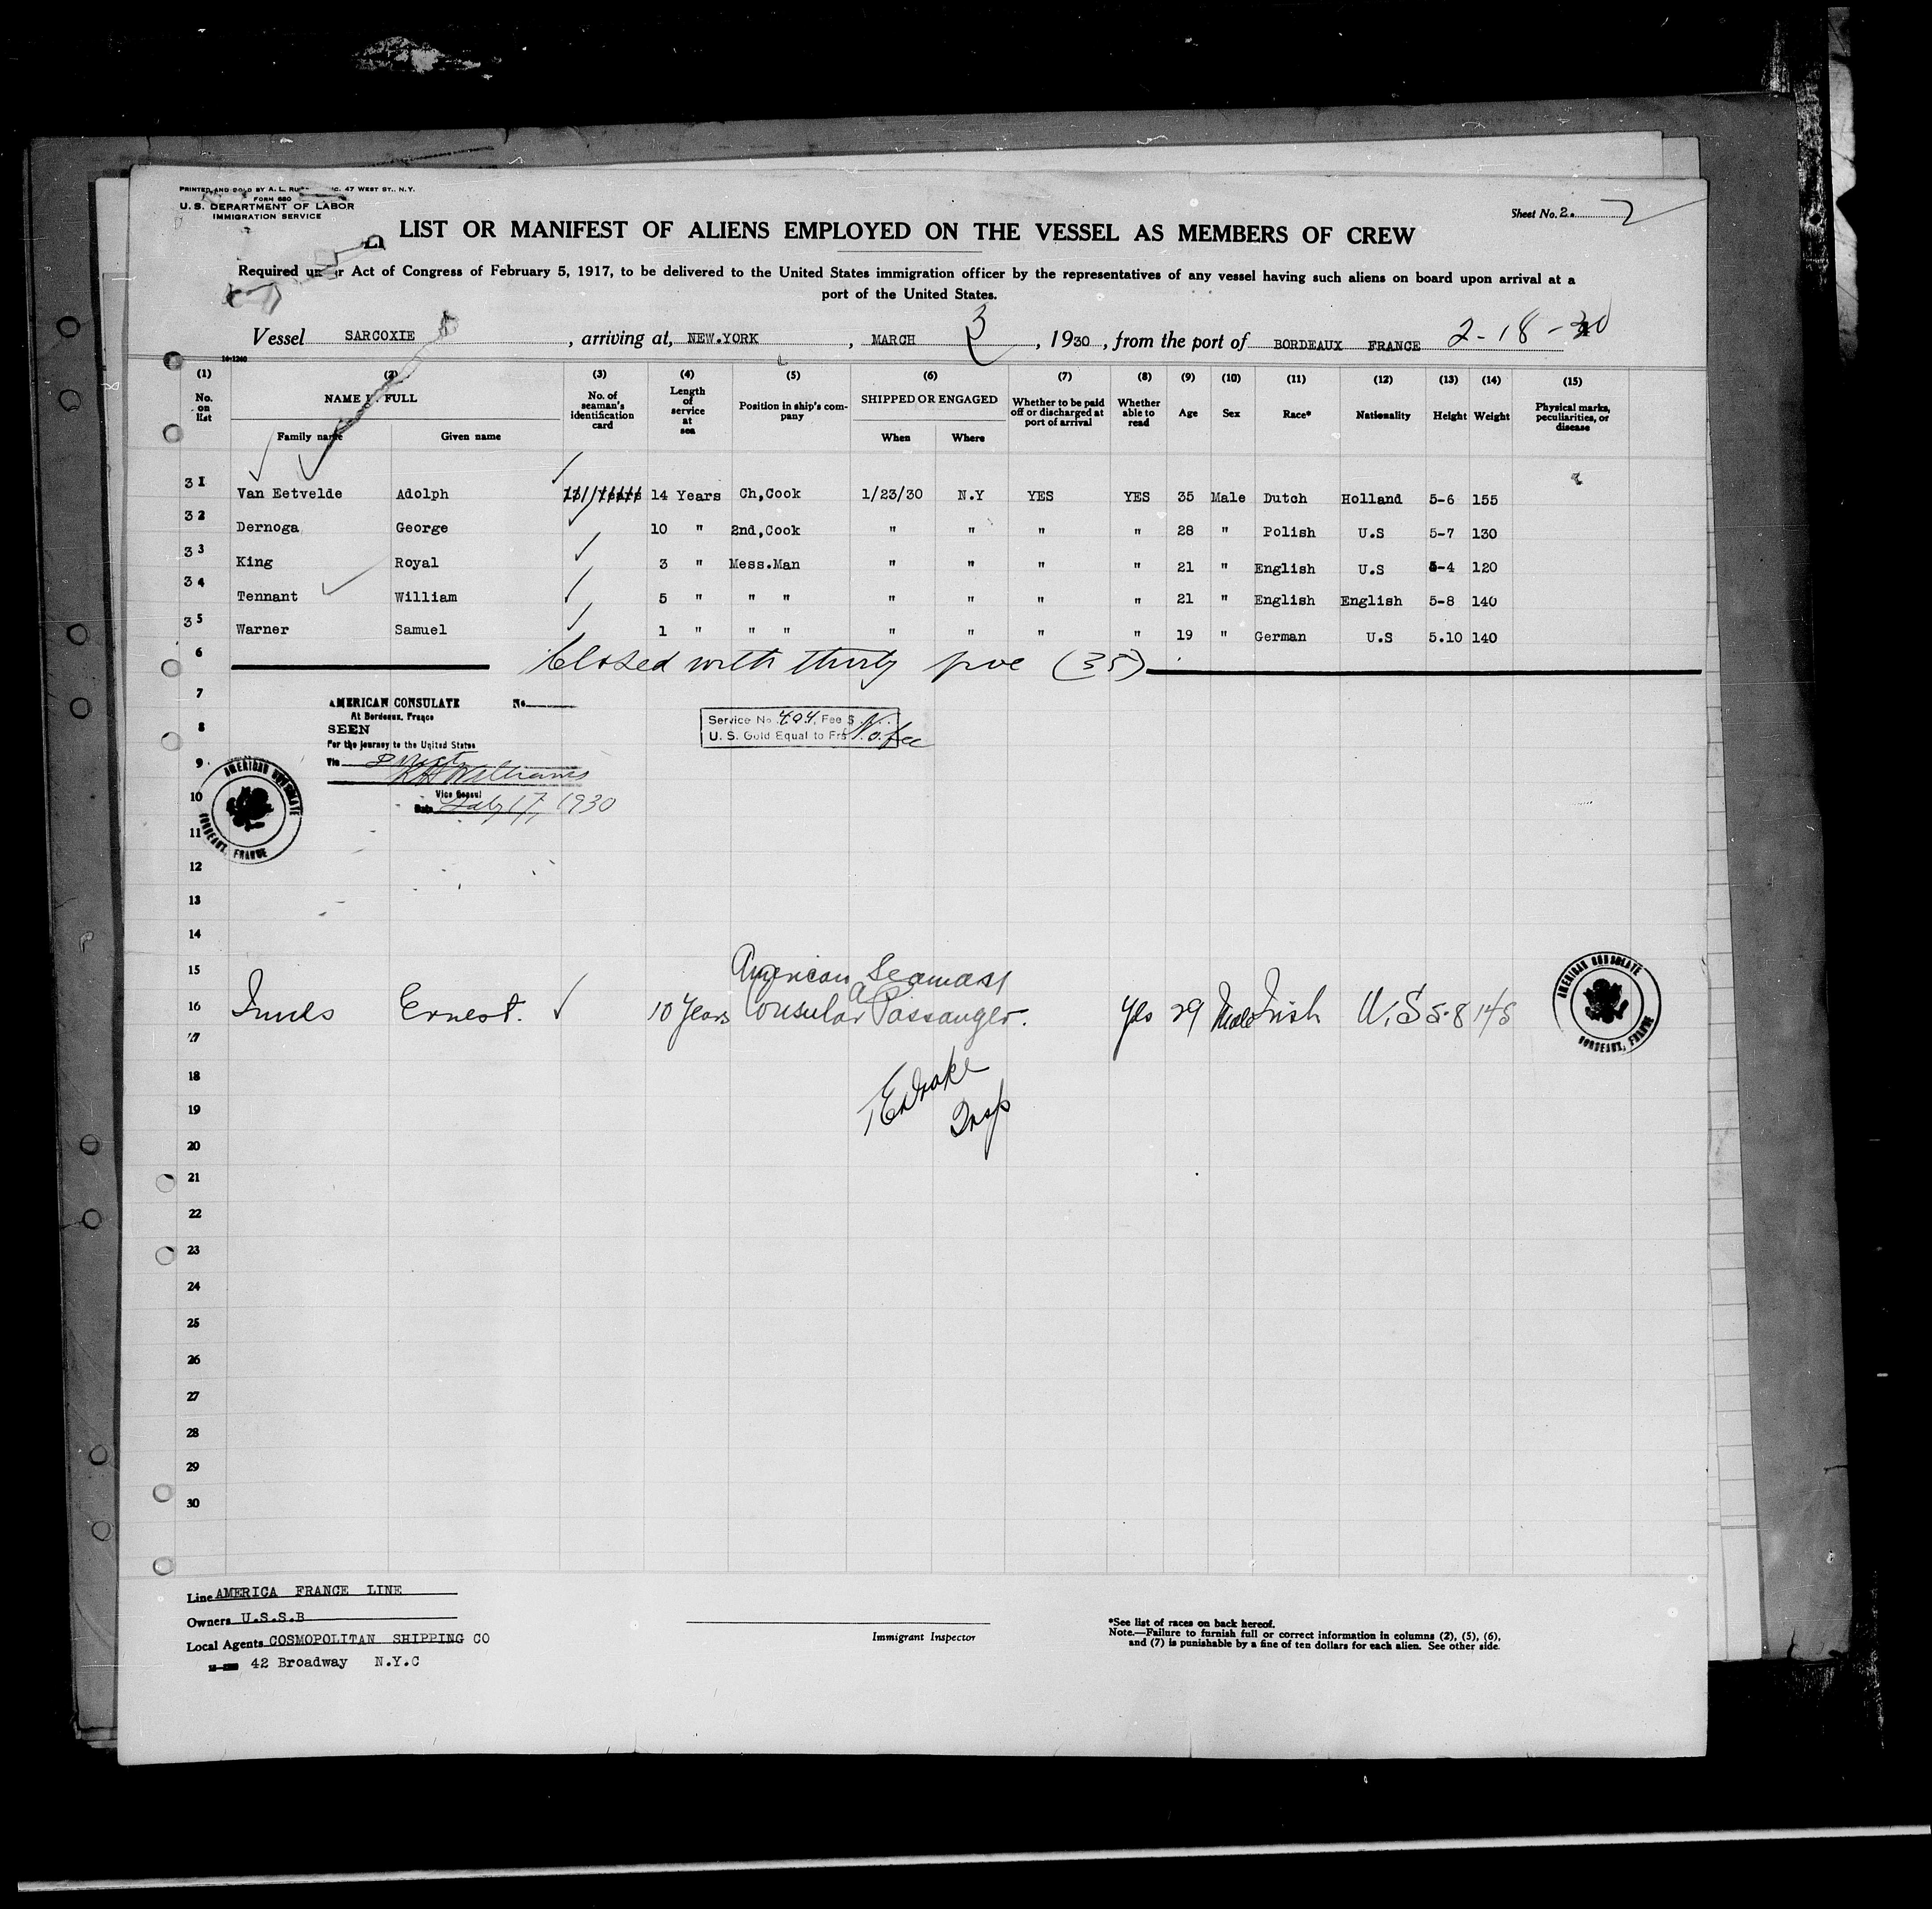 PRINTED AND SOLD BY A. L. 47 WEST ST., N.Y.
FORM 680
U. S. DEPARTMENT OF LABOR
IMMIGRATION SERVICE
Sheet No. 2. 2
LIST OR MANIFEST OF ALIENS EMPLOYED ON THE VESSEL AS MEMBERS OF CREW
Required under Act of Congress of February 5, 1917, to be delivered to the United States immigration officer by the representatives of any vessel having such aliens on board upon arrival at a
port of the United States.
Vessel SARCOXIE, arriving at, NEW.YORK, MARCH 3, 1930, from the port of BORDEAUX FRANCE 2-18-30
14-1240
(1) (2) (3) (4) (5) (6) (7) (8) (9) (10) (11) (12) (13) (14) (15)
No. on list NAME IN FULL No. of seaman's identification card Length of service at sea Position in ship's company SHIPPED OR ENGAGED Whether to be paid off or discharged at port of arrival Whether able to read Age Sex Race* Nationality Height Weight Physical marks, peculiarities, or disease
Family name Given name When Where
31 Van Eetvelde Adolph 14 Years Ch,Cook 1/23/30 N.Y YES YES 35 Male Dutch Holland 5-6 155
32 Dernoga George 10 " 2nd,Cook " " " " 28 " Polish U.S 5-7 130
33 King Royal 3 " Mess.Man " " " " 21 " English U.S 5-4 120
34 Tennant William 5 " " " " " " " 21 " English English 5-8 140
35 Warner Samuel 1 " " " " " " " 19 " German U.S 5.10 140
6 Closed with thirty five (35)
7
AMERICAN CONSULATE No.
At Bordeaux, France
8
SEEN
For the journey to the United States
Service No. 404, Fee $
U. S. Gold Equal to Frs No fee
9
Via Direct
Williams
10
Vice Consul
Date 17, 1930
AMERICAN CONSULATE
BORDEAUX, FRANCE
11
12
13
14
15 American Seaman
16 Ernest. 10 Years Consular Passanger. Yes 29 Male Irish U.S 5-8 145
AMERICAN CONSULATE
BORDEAUX, FRANCE
17
18 Drake
19 Insp
20
21
22
23
24
25
26
27
28
29
30
Line AMERICA FRANCE LINE
Owners U.S.S.B
Local Agents COSMOPOLITAN SHIPPING CO
42 Broadway N.Y.C
Immigrant Inspector
*See list of races on back hereof.
Note.—Failure to furnish full or correct information in columns (2), (5), (6),
and (7) is punishable by a fine of ten dollars for each alien. See other side.